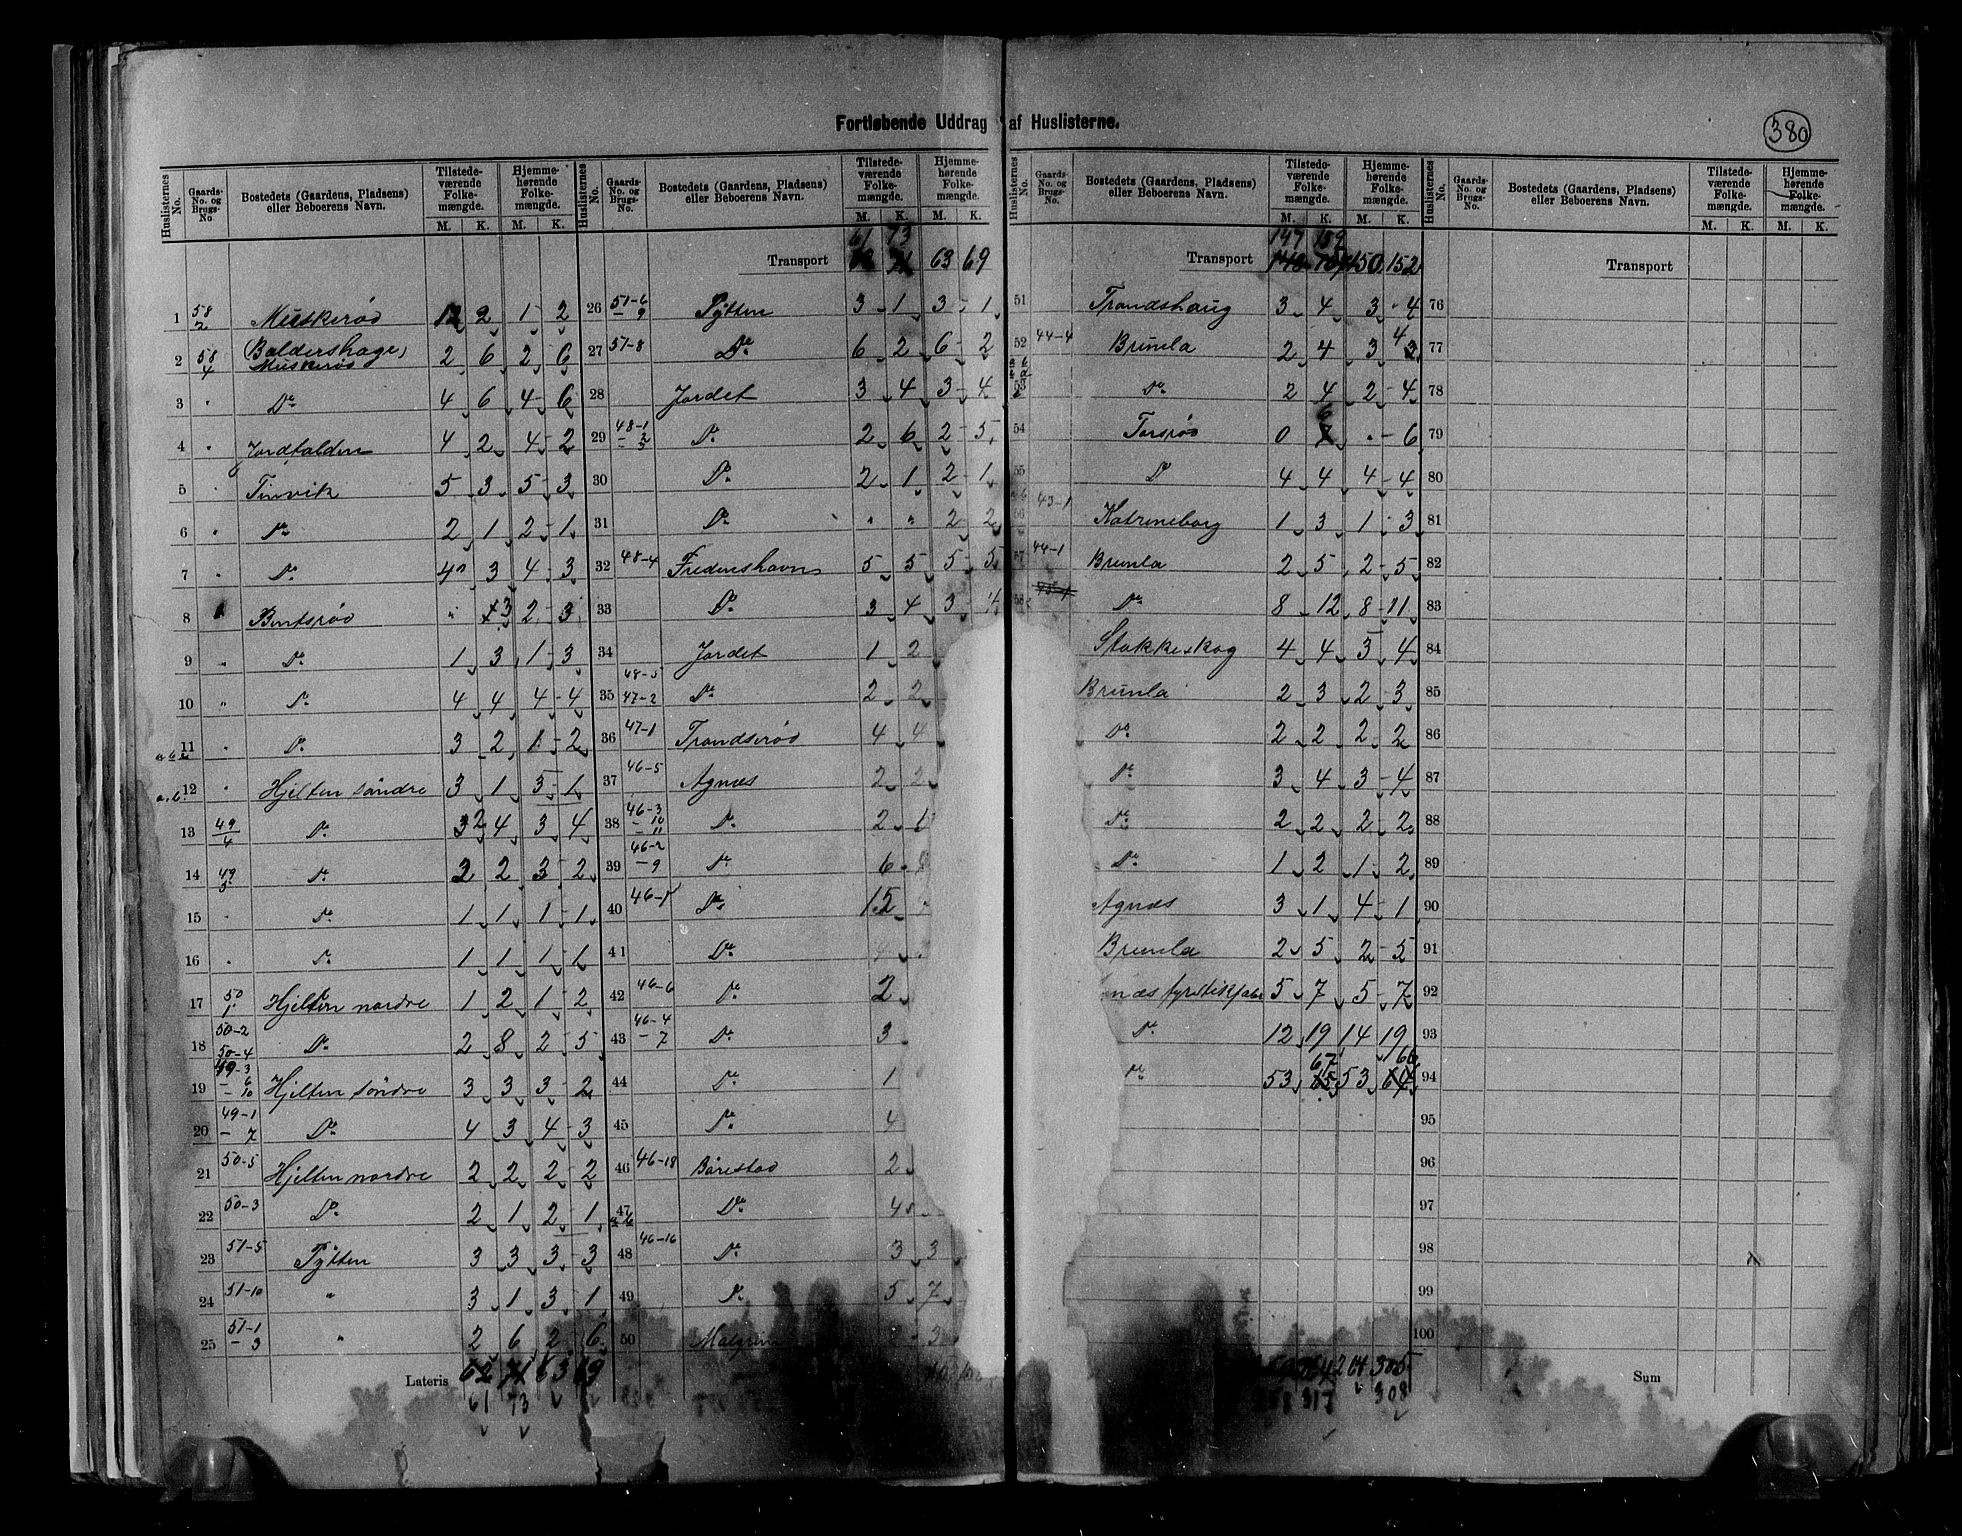 Fortløbende Uddrag af Huslisterne.
380
Huslisternes No. Gaards-No. og Brugs-No. Bostedets (Gaardens, Pladsens) eller Beboerens Navn. Tilstede-værende Folke-mængde. M. K. Hjemme-hørende Folke-mængde. M. K.
1 58 2 Muskerød 2 1 2
2 58 4 (Baldershage) Muskerød 2 6 2 6
3 " Do 4 6 4 6
4 " Jordfalden 4 2 4 2
5 " Tinvik 5 3 5 3
6 " Do 2 1 2 1
7 " Do 4 3 4 3
8 Bentsrød " 3 2 3
9 " Do 1 3 1 3
10 " Do 4 4 4 4
11 " Do 3 2 1 2
a.b. 12 " Hjelten søndre 3 1 3 1
13 49/4 Do 2 4 3 4
14 49 5 Do 2 3 2
15 " Do 1 1 1 1
16 " Do 1 1 1 1
17 50 1 Hjelten nordre 1 2 1 2
18 50-2 50-4 Do 2 8 2 5
19 49-3 -6 -10 Hjelten søndre 3 3 3 2
20 49-1 -7 Do 4 3 4 3
21 50-5 Hjelten nordre 2 2 2 2
22 50-3 Do 2 1 2 1
23 51-5 Pytten 3 3 3 3
24 51-10 " 3 1 3 1
25 51-1 -3 " 2 6 2 6
Lateris 62 71 63 69
61 73
Huslisternes No. Gaards-No. og Brugs-No. Bostedets (Gaardens, Pladsens) eller Beboerens Navn. Tilstede-værende Folke-mængde. M. K. Hjemme-hørende Folke-mængde. M. K.
61 73
Transport 63 69
26 51-6 -9 Pytten 3 1 3 1
27 51-8 Do 6 2 6 2
28 Jordet 3 4 3 4
29 48-1 -2 -3 Do 2 6 2 5
30 Do 2 1 2 1
31 Do " " 2 2
32 48-4 Fredenshavn 5 5 5 5
33 Do 3 4 3
34 Jordet 1 2
35 48-5 47-2 Do 2 2
36 47-1 Trondserød 4 4
37 46-5 Agnæs 2 2
38 46-3 -10 -11 Do 2 1
39 46-2 -9 Do 6
40 46-1 Do
41 Do
42 46-6 Do 2
43 46-4 -7 Do 3
44 Do 1
45 Do 4
46 46-18 Bårestad 2
47 a b Do 4
48 46-16 Do 3 3
49 Do 5 7
50 3
Huslisternes No. Gaards-No. og Brugs-No. Bostedets (Gaardens, Pladsens) eller Beboerens Navn. Tilstede-værende Folke-mængde. M. K. Hjemme-hørende Folke-mængde. M. K.
147 159
Transport 150 152
51 Trondshaug 3 4 3 4
52 44-4 Brunla 2 4 3 4
53 Do 2 4 2 4
54 Torsrød 0 6 " 6
55 Do 4 4 4 4
56 43-1 Katrineborg 1 3 1 3
57 44-1 Brunla 2 5 2 5
58 Do 8 12 8 11
Stokkeskog 4 4 3 4
Brunla 2 3 2 3
Do 2 2 2 2
Do 3 4 3 4
Do 2 2 2 2
Do 1 2 1 2
Agnæs 3 1 4 1
Brunla 2 5 2 5
5 7 5 7
Do 12 19 14 19
Do 53 67 53 66
305
317 308
Huslisternes No. Gaards-No. og Brugs-No. Bostedets (Gaardens, Pladsens) eller Beboerens Navn. Tilstede-værende Folke-mængde. M. K. Hjemme-hørende Folke-mængde. M. K.
Transport
76
77
78
79
80
81
82
83
84
85
86
87
88
89
90
91
92
93
94
95
96
97
98
99
100
Sum